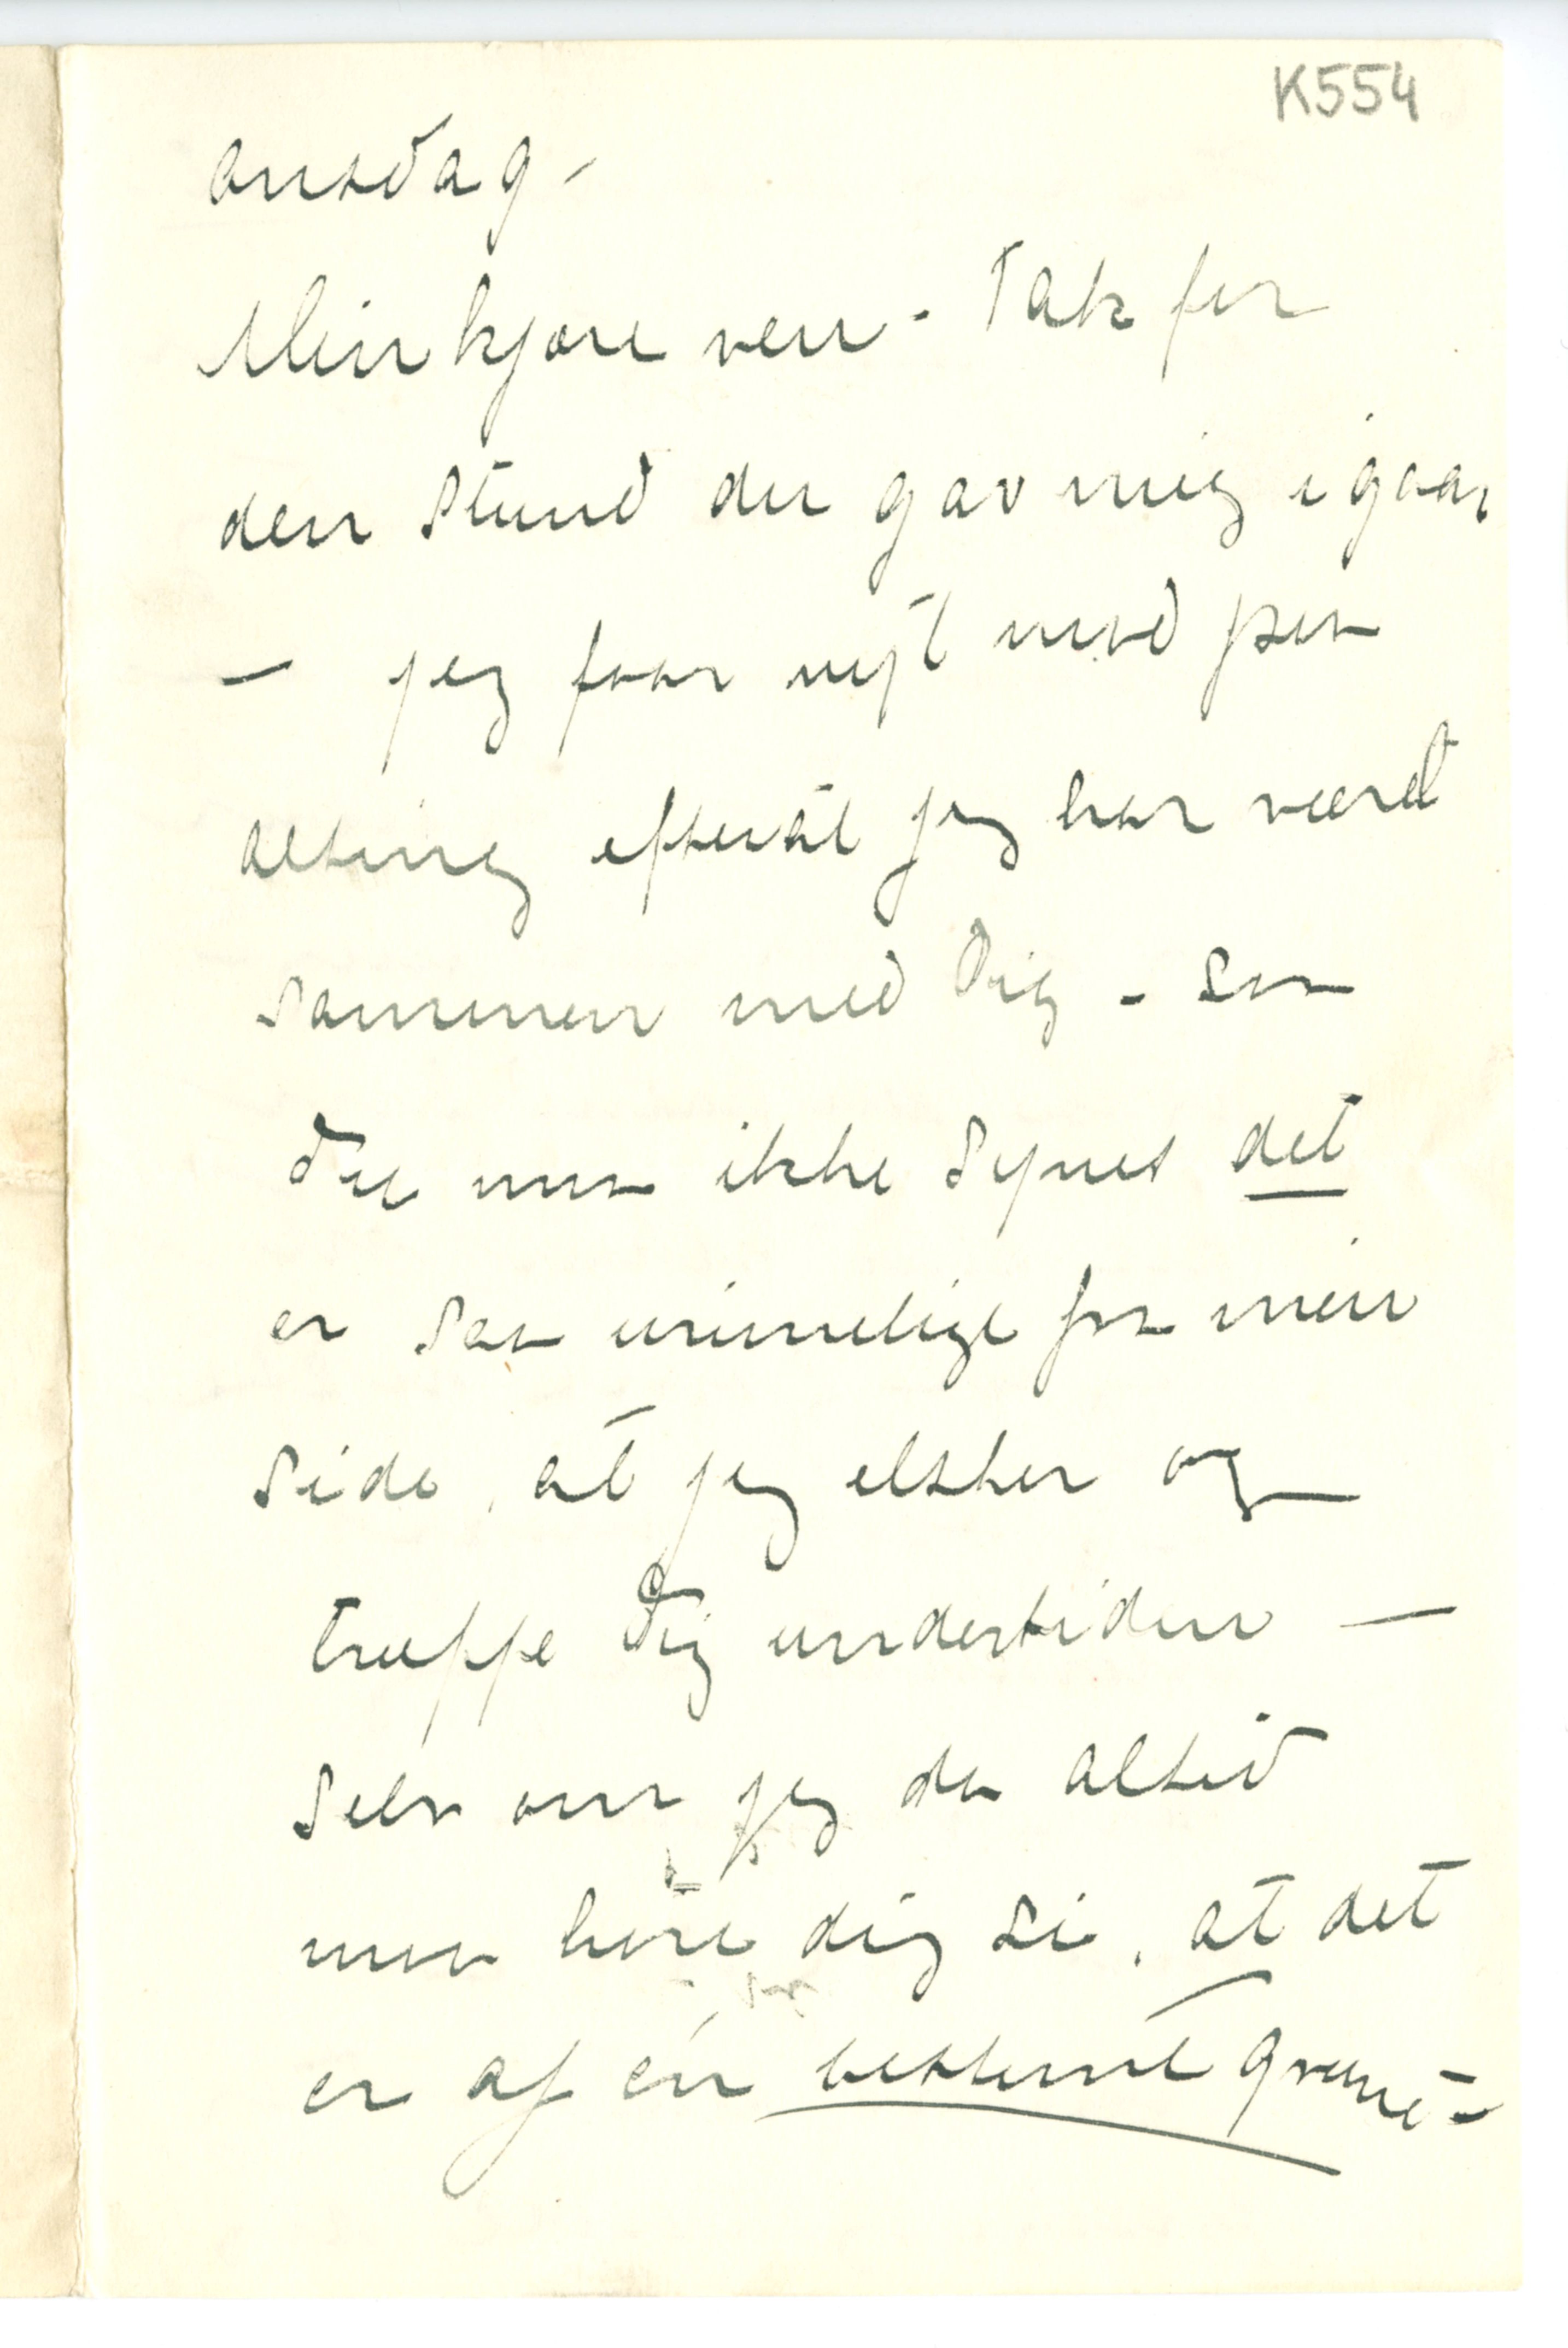 K554
onsdag –
Min kjære ven – Tak for
den stund du gav mig igaar
– jeg faar nyt mod paa
alting efterat jeg har været
sammen med Dig – saa
Du maa ikke synes det
er saa urimelige fra min
side, at jeg elsker og
træffe Dig undertiden –
selv om jeg da altid
maa høre dig si, at det
er af en bestemt